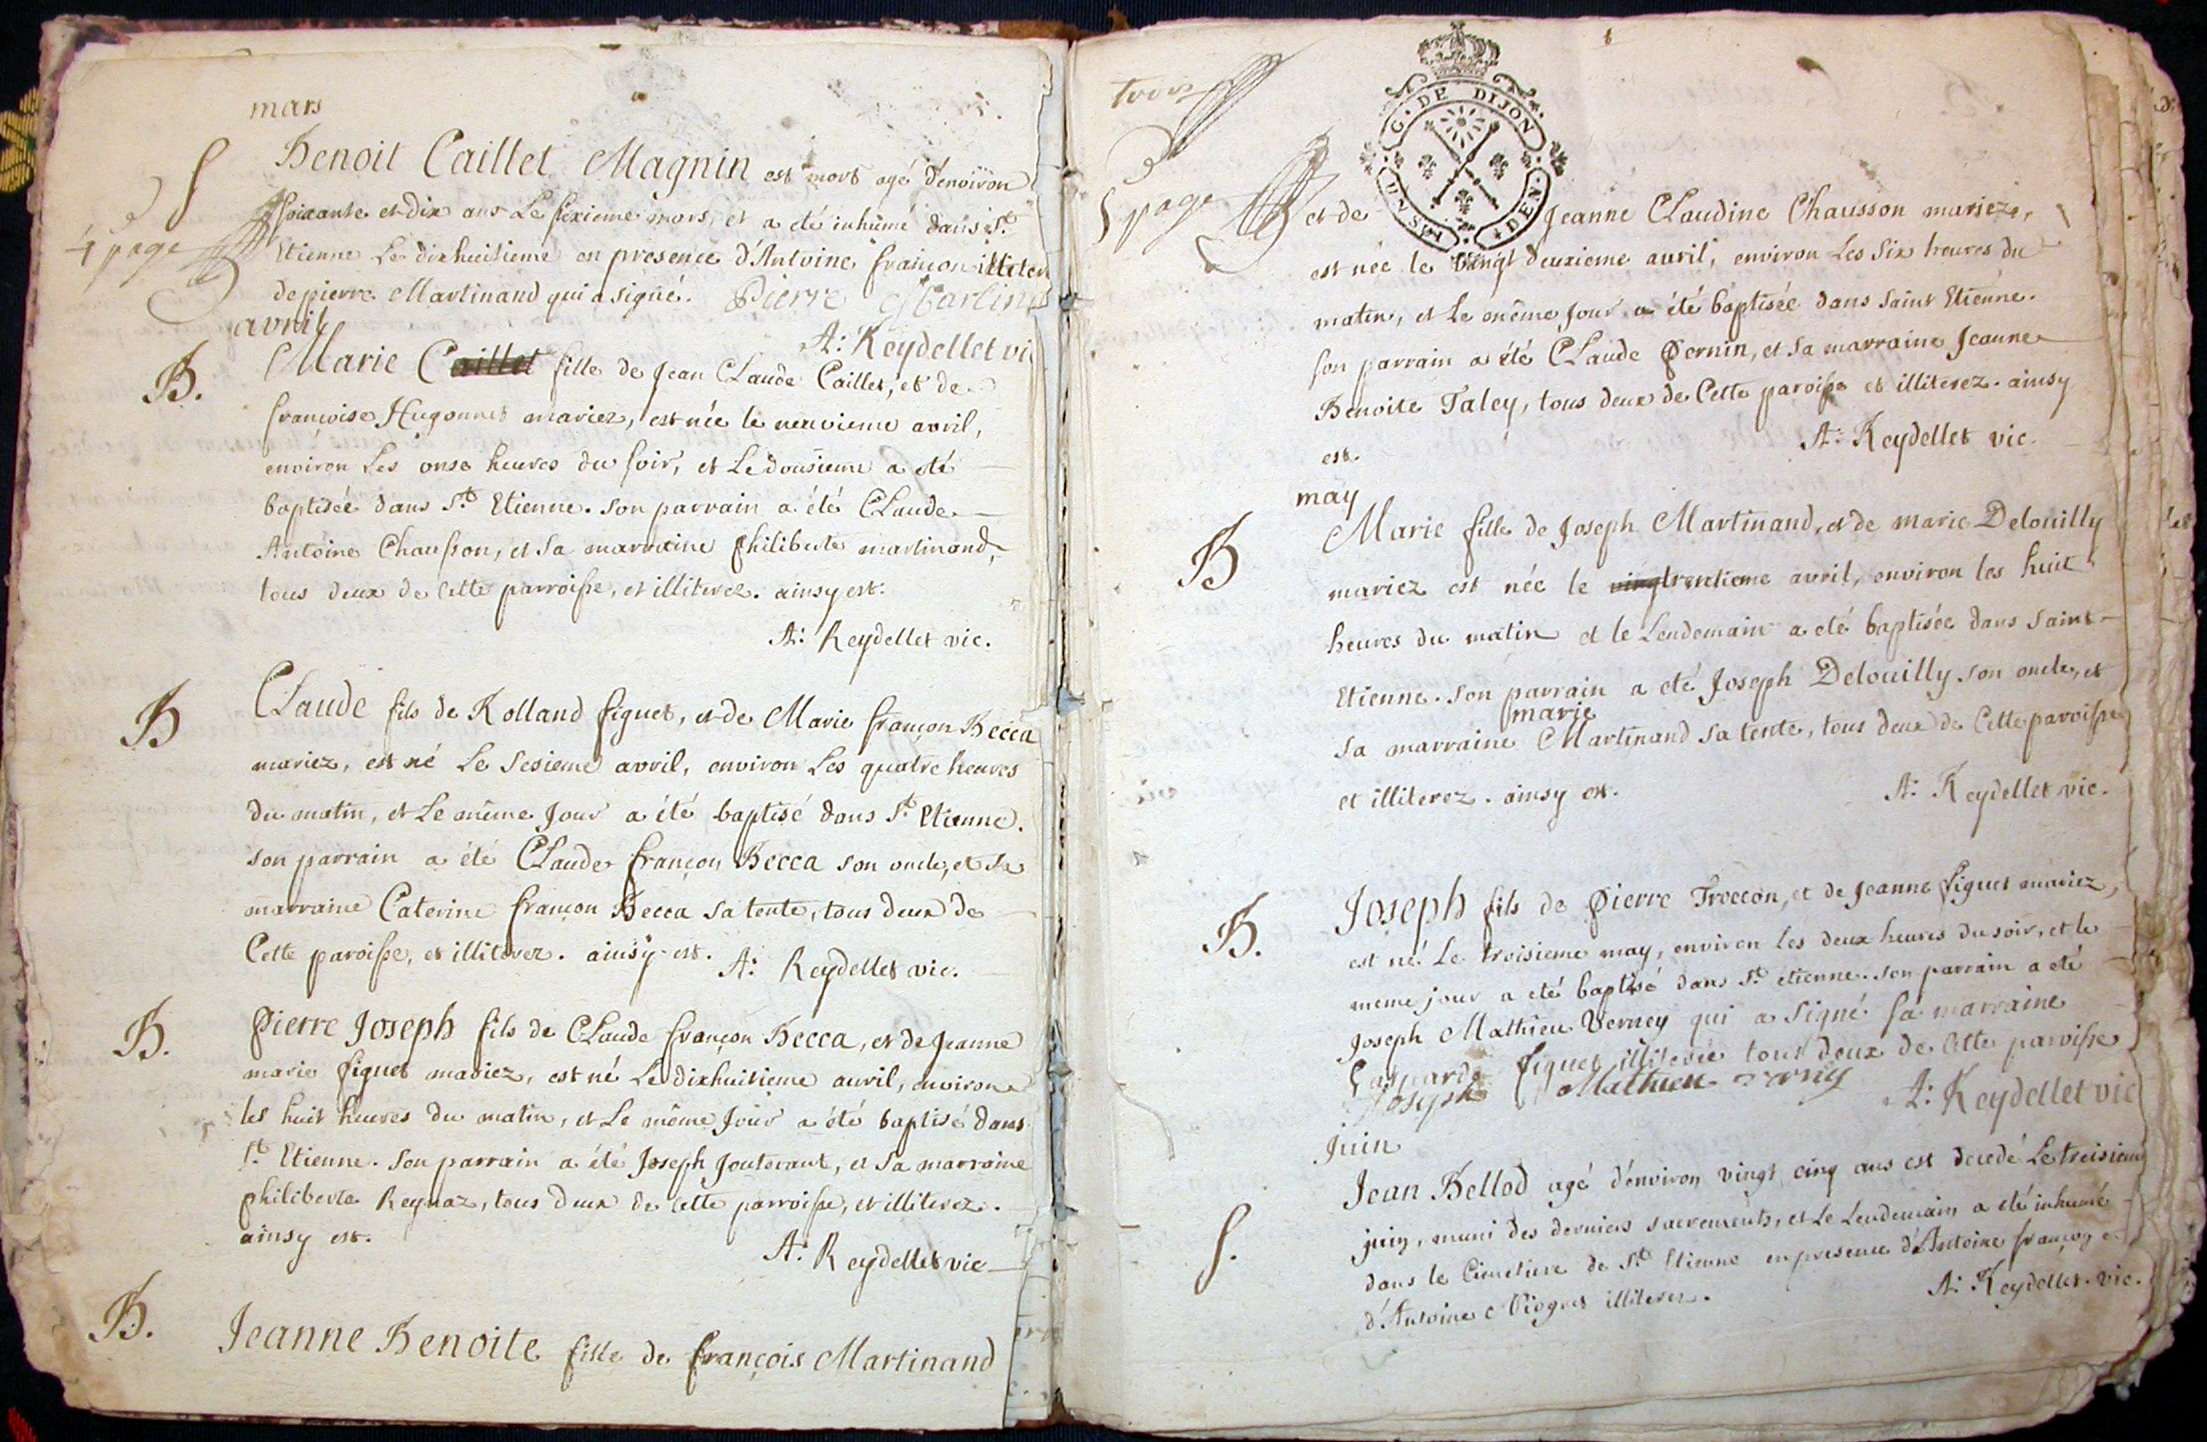 mars
S
4 page
Benoit Caillet Magnin est mort agé d'environ
soixante et dix ans Le sixieme mars, et a eté inhumé dans St
Etienne Le dixhuitieme en presence d'Antoine françon
de pierre Martinand qui a signé. Pierre Martin
A: Reydellet vi
avril
B.
Marie Caillet fille de Jean CLaude Caillet, et de
françoise Hugonnet mariez, est née le neuvieme avril,
environ Les onse heures du soir, et Le dousieme a eté
baptisée dans St Etienne. son parrain a été CLaude
Antoine Chausson, et sa marraine philiberte martinand,
tous deux de Cette parroisse, et illiterez. ainsy est.
A: Reydellet vic.
B
CLaude fils de Rolland figuet, et de Marie françon Becca
mariez, est né Le sesieme avril, environ Les quatre heures
du matin, et Le même Jour a été baptisé dans St Etienne.
son parrain a été CLaude françon Becca son oncle, et sa
marraine Caterine françon Becca sa tente, tous deux de
Cette paroisse, et illiterez. ainsy est. A: Reydellet vic.
B.
Pierre Joseph fils de CLaude françon Becca, et de Jeanne
marie figuet mariez, est né Le dixhuitieme avril, environ
les huit heures du matin, et Le même Jour a été baptisé dans
St Etienne. son parrain a été Joseph Jouterant, et sa marraine
philiberte Reynaz, tous deux de Cette parroisse, et illiterez.
ainsy est.
A: Reydellet vic
B.
Jeanne Benoite fille de françois Martinand
trois
5 page
G. DE DIJON
et de Jeanne CLaudine Chausson mariez,
est née le vingt deuxieme avril, environ Les six heures du
matin, et Le même Jour a été baptisée dans saint Etienne.
son parrain a été CLaude Pernin, et sa marraine Jeanne
Benoite Taley, tous deux de Cette paroisse et illiterez. ainsy
est.
A: Reydellet vic.
may
B
Marie fille de Joseph Martinand, et de marie Delouilly
mariez est née le vingtrentieme avril, environ les huit
heures du matin et le Lendemain a eté baptisée dans saint
Etienne. son parrain a eté Joseph Delouilly son oncle, et
marie
sa marraine Martinand sa tente, tous deux de Cette paroisse
et illiterez. ainsy est.
A: Reydellet vic.
B.
Joseph fils de Pierre Troccon, et de Jeanne figuet mariez,
est né Le troisieme may, environ les deux heures du soir, et le
meme jour a eté baptisé dans St etienne. son parrain a eté
Joseph Mathieu Verney qui a signé sa marraine
Gasparde figuet illiterée tous deux de Cette paroisse
Joseph Mathieu verney
A: Reydellet vic
juin
S.
Jean Bellod agé d'environ vingt cinq ans est decedé Le troisieme
juin, muni des derniers sacrements, et Le Lendemain a eté inhumé
dans le Cimetiere de St Etienne en presence d'Antoine françon e
d'Antoine Viognet illiterez.
A: Reydellet. vic.